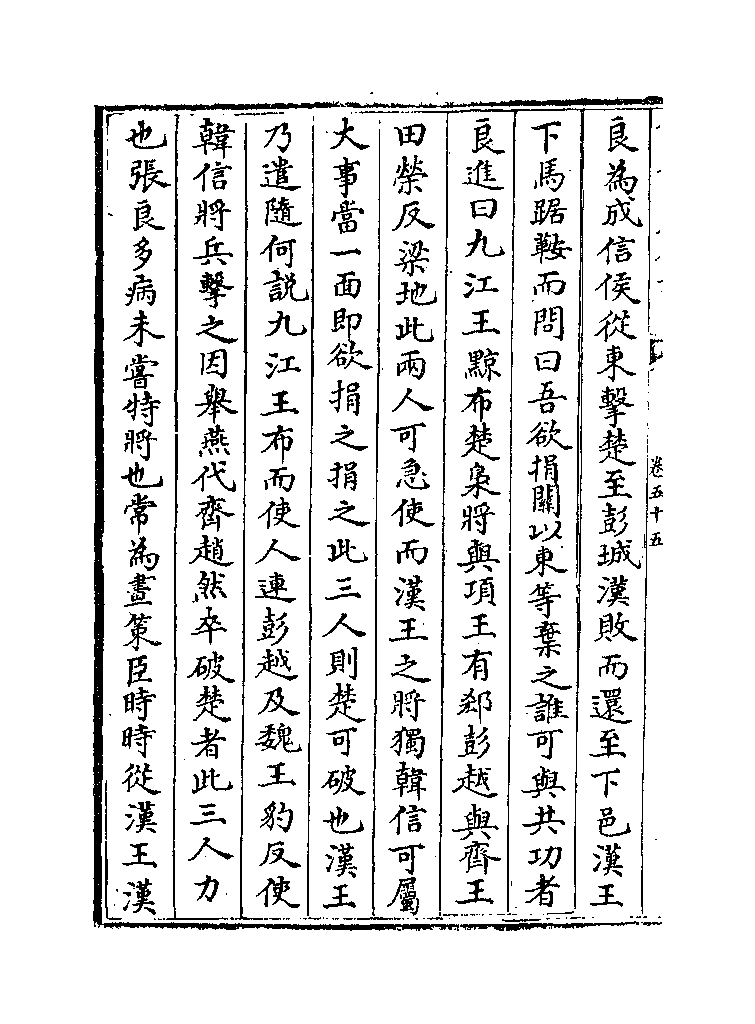 良為成信侯從東擊楚至彭城漢敗而還至下邑漢王
下馬踞鞍而問曰吾欲捐關以東等棄之誰可與共功者
良進曰九江王黥布楚梟將與項王有郄彭越與齊王
田榮反梁地此兩人可急使而漢王之將獨韓信可屬
大事當一面即欲捐之捐之此三人則楚可破也漢王
乃遣隨何説九江王布而使人連彭越及魏王豹反使
韓信將兵擊之因舉燕代齊趙然卒破楚者此三人力
也張良多病未嘗特將也常為畫策臣時時從漢王漢
卷五十五